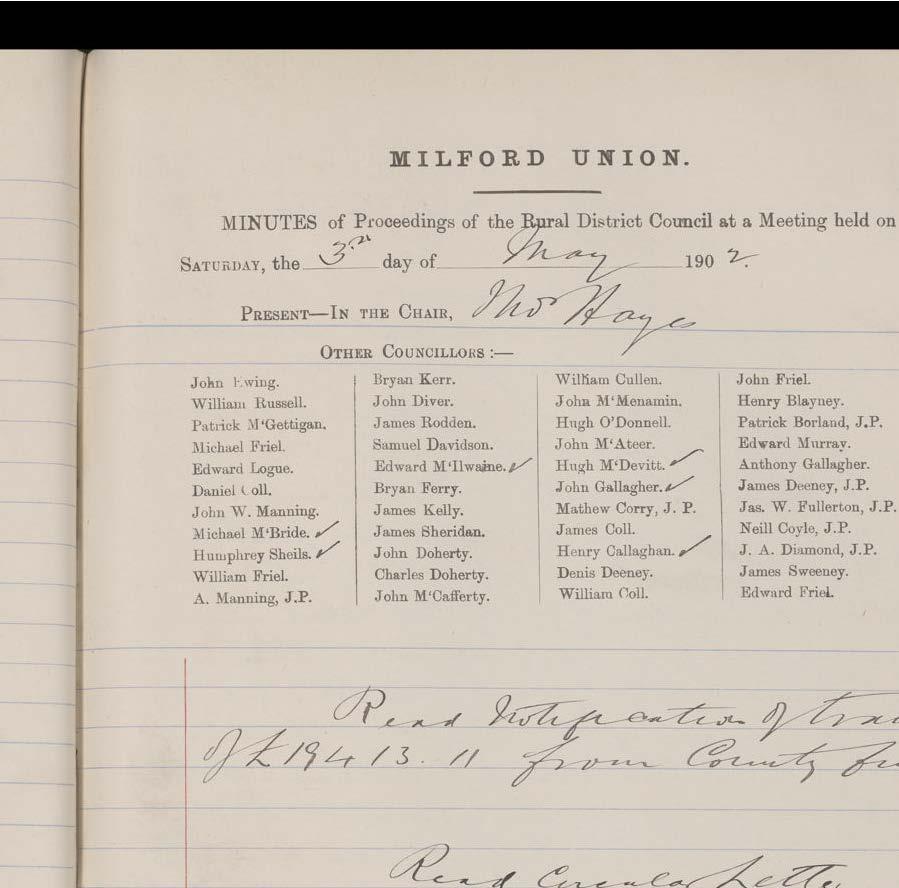 MILFORD UNION.
MINUTES of Proceedings of the Rural District Council at a Meeting held on
SATURDAY, the 3rd day of May 1902.
PRESENT—IN THE CHAIR, Thos Hayes
OTHER COUNCILLORS :—
John Ewing.
William Russell.
Patrick M‘Gettigan.
Michael Friel.
Edward Logue.
Daniel Coll.
John W. Manning.
Michael M‘Bride. ✓
Humphrey Sheils. ✓
William Friel.
A. Manning, J.P.
Bryan Kerr.
John Diver.
James Rodden.
Samuel Davidson.
Edward M‘Ilwaine. ✓
Bryan Ferry.
James Kelly.
James Sheridan.
John Doherty.
Charles Doherty.
John M‘Cafferty.
William Cullen.
John M‘Menamin.
Hugh O'Donnell.
John M‘Ateer.
Hugh M‘Devitt. ✓
John Gallagher. ✓
Mathew Corry, J. P.
James Coll.
Henry Callaghan. ✓
Denis Deeney.
William Coll.
John Friel.
Henry Blayney.
Patrick Borland, J.P.
Edward Murray.
Anthony Gallagher.
James Deeney, J.P.
Jas. W. Fullerton, J.P.
Neill Coyle, J.P.
J. A. Diamond, J.P.
James Sweeney.
Edward Friel.
Read Notification of
of £194 13. 11 from County
Read Circular Lette